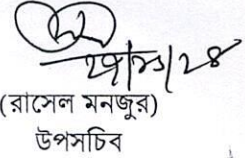 (রাসেল মনজুর)
উপসচিব